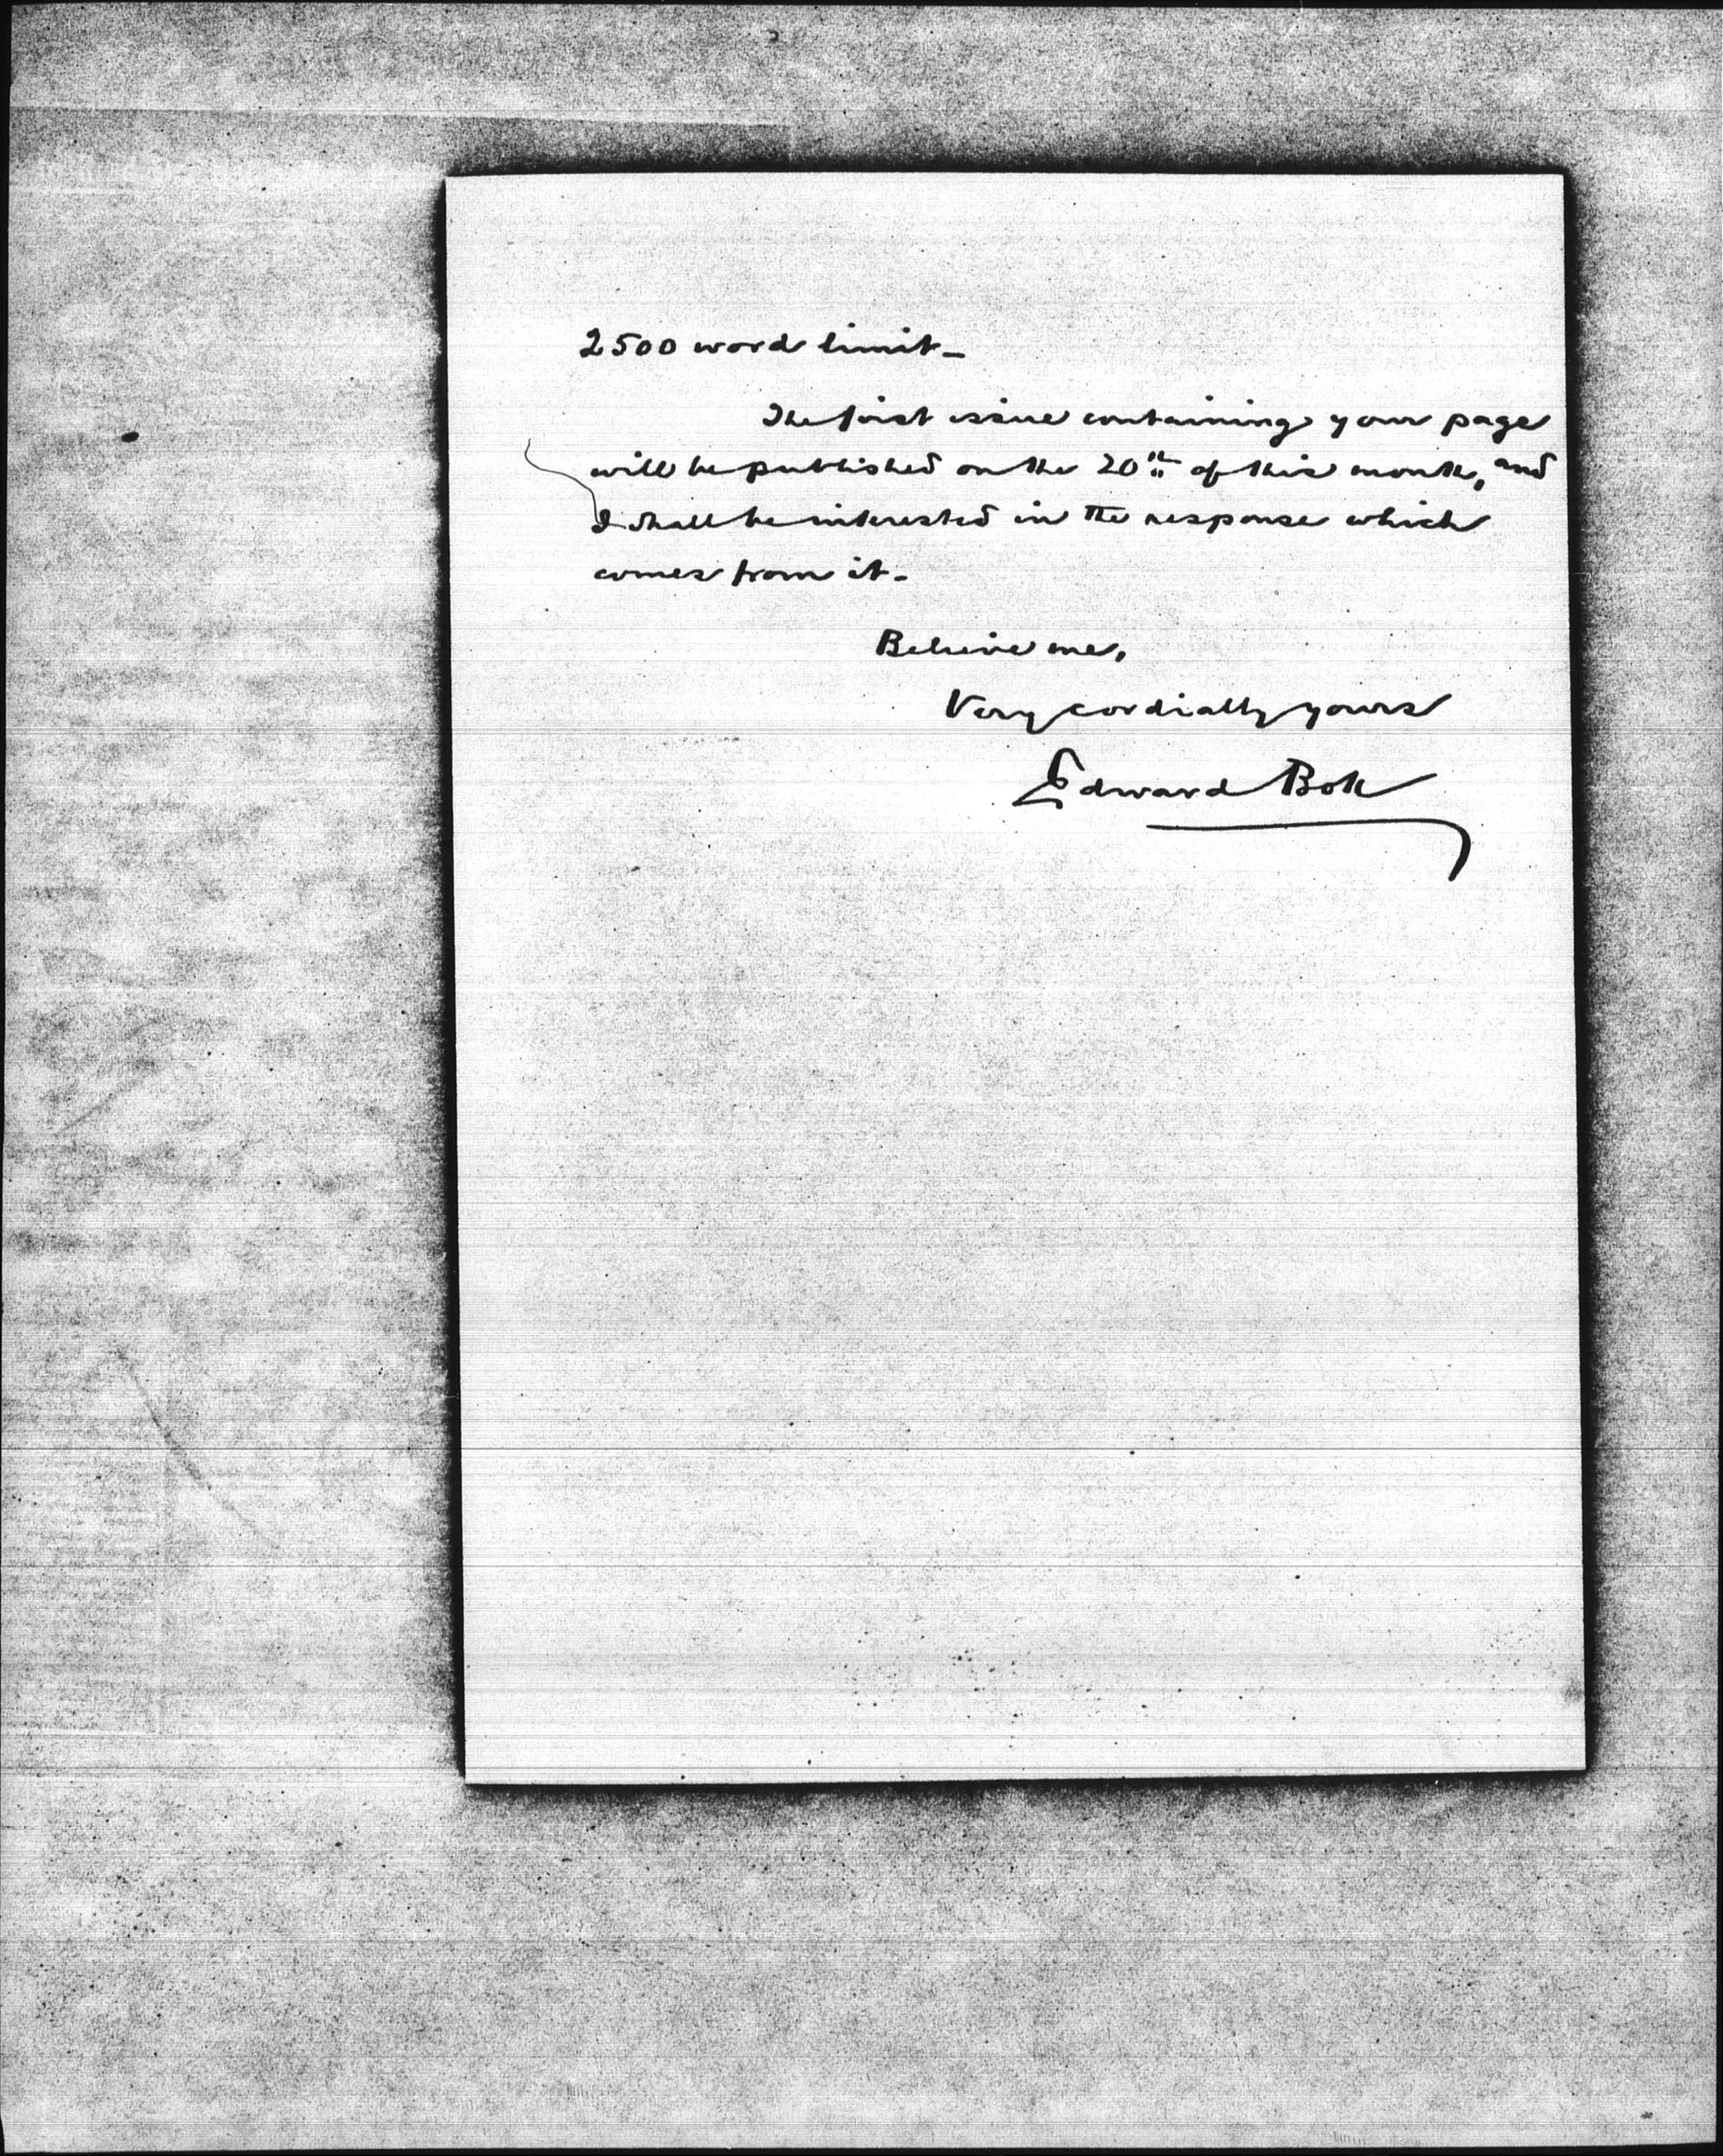 2500 word limit-
The first issue containing your page
will be published on the 20th of this month, and
I shall be interested in the response which
comes from it-
Believe me,
Very cordially yours
Edward Bok